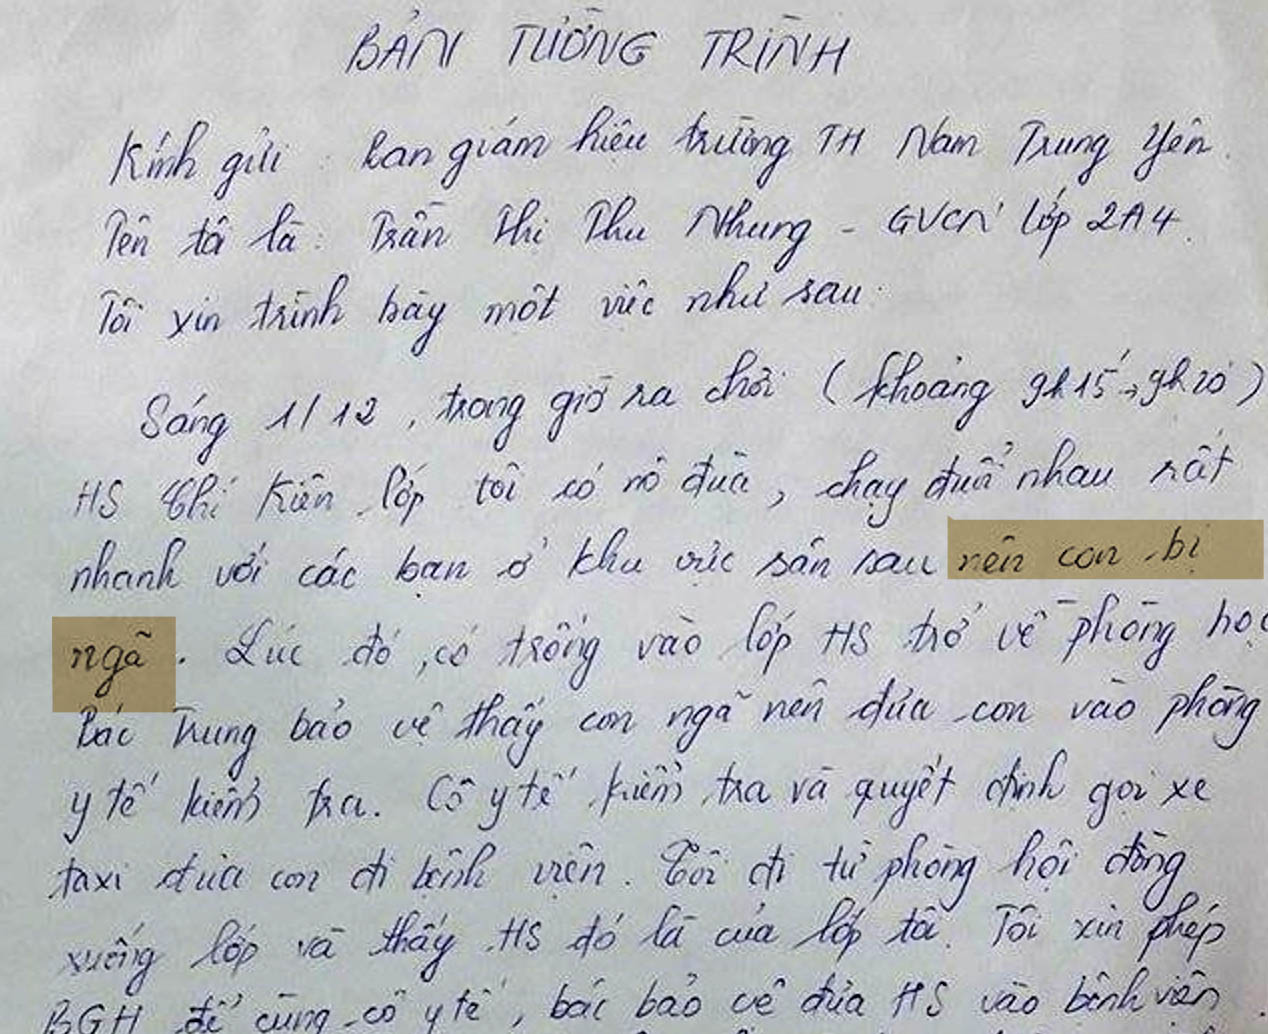 BẢN TƯỜNG TRÌNH
Kính gửi : Ban giám hiệu trường TH Nam Trung Yên.
Tên tôi là : Trần Thị Thu Nhung - GVCN lớp 2A4.
Tôi xin trình bày một việc như sau:
Sáng 1/12, trong giờ ra chơi (khoảng 9h15→9h20)
HS Chí Kiên lớp tôi có nô đùa, chạy đuổi nhau rất
nhanh với các bạn ở khu vực sân sau nên con bị
ngã. Lúc đó, có trống vào lớp HS trở về phòng học
Bác Trung bảo vệ thấy con ngã nên đưa con vào phòng
y tế kiểm tra. Cô y tế kiểm tra và quyết định gọi xe
taxi đưa con đi bệnh viện. Tôi đi từ phòng hội đồng
xuống lớp và thấy HS đó là của lớp tôi. Tôi xin phép
BGH để cùng cô y tế, bác bảo vệ đưa HS vào bệnh viện.